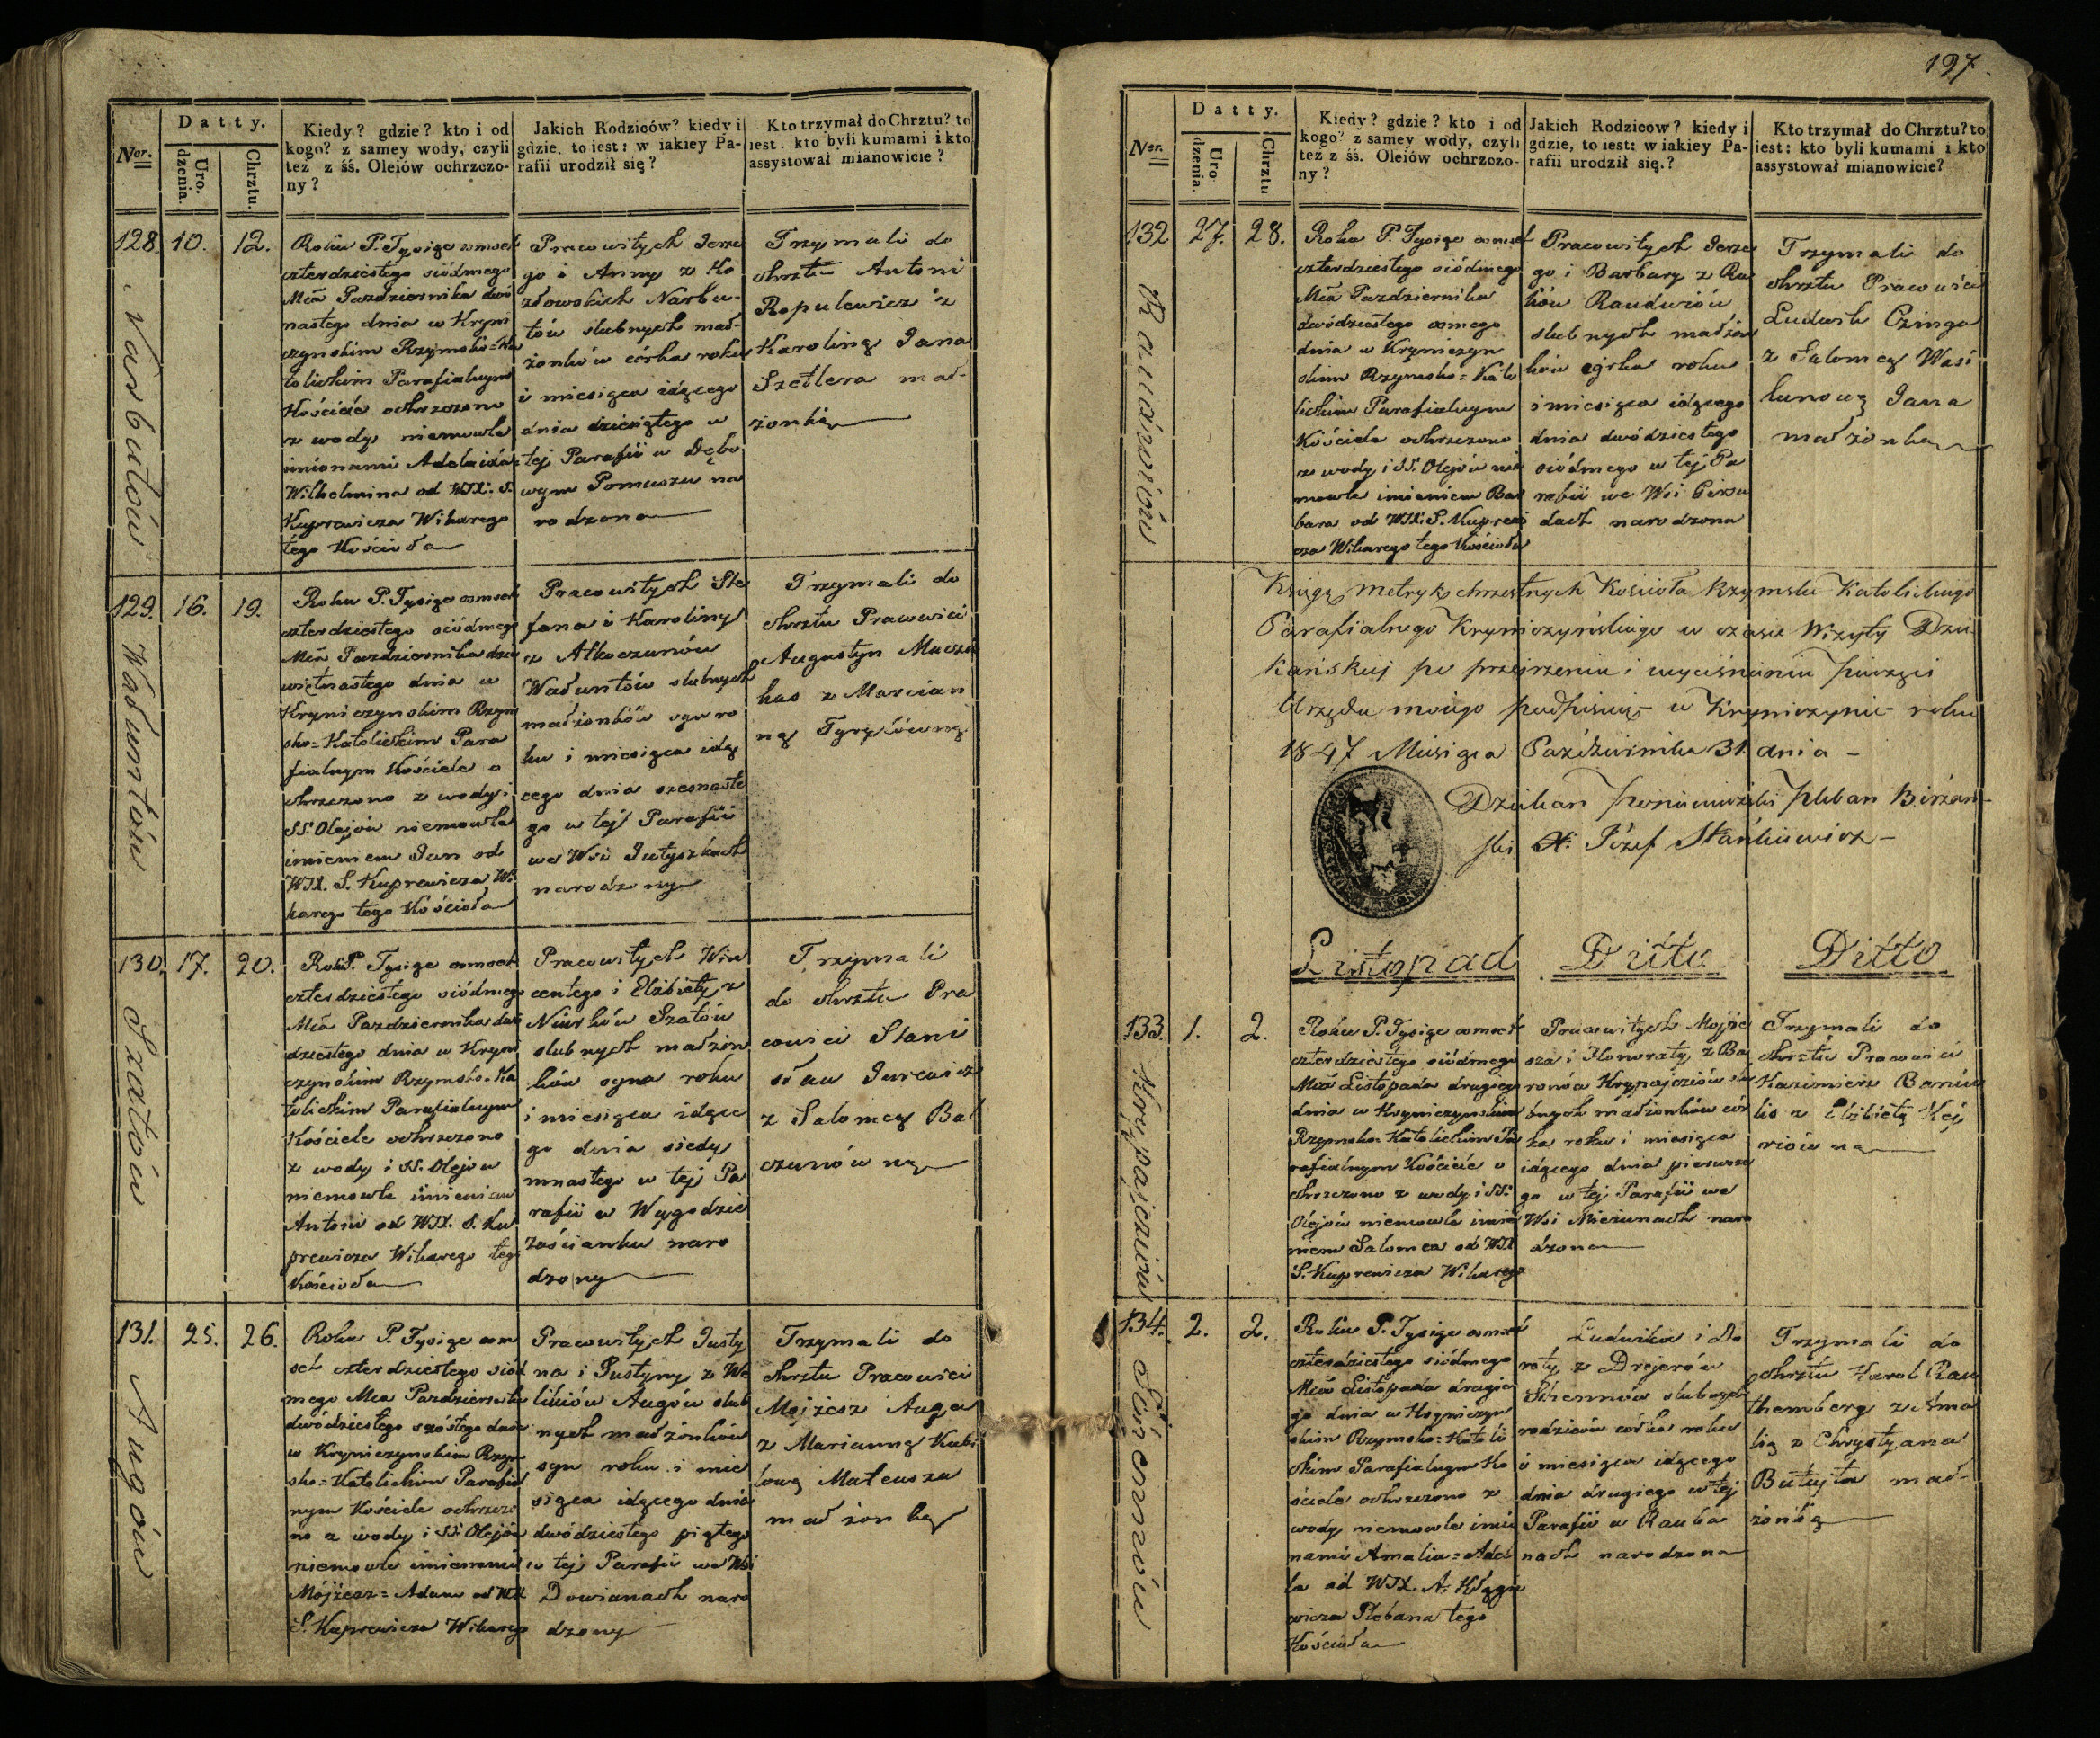 Nor.
Datty.
Uro.
dzenia.
Chrztu.
Kiedy? gdzie? kto i od
kogo? z samey wody, czyli
też z śś. Oleiów ochrzczo-
ny?
Jakich Rodziców? kiedy i
gdzie, to iest: w iakiey Pa-
rafii urodził się?
Kto trzymał do Chrztu? to
iest. kto byli kumami i kto
assystował mianowicie?
128. 10. 12.
Narbutów
Roku P. Tysiąc osmset
czterdziestego siódmego
Mca Pazdziernika dwó
nastego dnia w Kryni
czynskim Rzymsko=Ka
tolickim Parafialnym
Kościele ochrzczono
z wody niemowle
imionami Adelaida=
Wilhelmina od WJX. S.
Kuprewicza Wikarego
tego Kościoła
Pracowitych Jerze
go i Anny z Ko
złowskich Narbu-
tów slubnych mał-
żonków córka roku
i miesiąca idącego
dnia dziesiątego w
tej Parafii w Dębo
wym Pomuszu na
rodzona
Trzymali do
chrztu Antoni
Ropulewicz z
Karoliną Jana
Szetlera mał-
żonką
129. 16. 19.
Wałuntów
Roku P. Tysiąc osmset
czterdziestego siódmego
Mca Pazdziernika dzie
wietnastego dnia w
Kryniczynskim Rzym
sko=Katolickim Para
fialnym Kościele o
chrzczono z wody i
SS. Olejów niemowle
imieniem Jan od
WJX. S. Kuprewicza Wi
karego tego Kościoła
Pracowitych Ste
fana i Karoliny
z Atkoczunów
Wałuntów slubnych
małżonków syn ro
ku i miesiąca idą
cego dnia szesnaste
go w tej Parafii
we Wsi Jutyszkach
narodzony
Trzymali do
chrztu Pracowici
Augustyn Macza
kas z Marcian
ną
130. 17. 20.
Szatów
Roku P. Tysiąc osmset
czterdziestego siódmego
Mca Pazdziernika dwó
dziestego dnia w Kryni
czynskim Rzymsko=Ka
tolickim Parafialnym
Kościele ochrzczono
z wody i SS. Olejów
niemowle imieniem
Antoni od WJX. S. Ku
prewicza Wikarego tego
Kościoła
Pracowitych Win
centego i Elżbiety z
Niurków Szatów
slubnych małżon
ków syna roku
i miesiąca idące
go dnia siedy
mnastego w tej Pa
rafii w Wygodzie
Zaścianku naro
dzony
Trzymali
do chrztu Pra
cowici Stani
sław Jurewicz
z Salomeą Bal
czunów ną
131. 25. 26.
Augów
Roku P. Tysiąc osm
set czterdziestego siód
mego Mca Pazdziernika
dwódziestego szóstego dnia
w Kryniczynskim Rzym
sko=Katolickim Parafial
nym Kościele ochrzczo
no z wody i SS. Olejów
niemowle imionami
Mójżesz=Adam od WJX
S. Kuprewicza Wikarego
Pracowitych Justy
na i Justyny z We
likiów Augów slub
nych małżonków
syn roku i mie
siąca idącego dnia
dwódziestego piątego
w tej Parafii we Wsi
Dowianach naro
dzony
Trzymali do
chrztu Pracowici
Mójżesz Auga
z Marianną Kubi
lową Mateusza
małżonką
197.
Nor.
Datty.
Uro
dzenia.
Chrztu
Kiedy? gdzie? kto i od
kogo? z samey wody, czyli
tez z śś. Oleiów ochrzczo-
ny?
Jakich Rodzicow? kiedy i
gdzie, to iest: w iakiey Pa-
rafii urodził się.?
Kto trzymał do Chrztu? to
iest: kto byli kumami i kto
assystował mianowicie?
132 27. 28.
Raudwiów
Roku P. Tysiąc osmset
czterdziestego siódmego
Mca Pazdziernika
dwódziestego osmego
dnia w Kryniczyn
skim Rzymsko=Kato
lickim Parafialnym
Kościele ochrzczono
z wody i SS. Olejów nie
mowle imieniem Bar
bara od WJX. S. Kuprewi
cza Wikarego tego Kościoła
Pracowitych Jerze
go i Barbary z Ra
ków Raudwiów
slubnych małżon
ków córka roku
i miesiąca idącego
dnia dwódziestego
siódmego w tej Pa
rafii we Wsi Girsu
dach narodzona
Trzymali do
chrztu Pracowici
Ludwik Czinga
z Salomeą Wasi
lunową Jana
małżonką
Księgę metryk chrzestnych Kościoła Rzymsko Katolickiego
Parafialnego Kryniczyńskiego w czasie Wizyty Dzie
kańskiej po przejrzeniu i wyciśnieniu pieczęci
Urzędu mojego podpisuję w Kryniczynie roku
1847 Miesiąca Października 31 dnia -
Dziekan Poniewieżski Pleban Birżań-
ski X. Józef Stańkiewicz -
Listopad Ditto Ditto
133. 1. 2.
Krypajciów
Roku P. Tysiąc osmset
czterdziestego siódmego
Mca Listopada drugiego
dnia w Kryniczynskim
Rzymsko=Katolickim Pa
rafialnym Kościele o
chrzczono z wody i SS.
Olejów niemowle imie
niem Salomea od WJX
S. Kuprewicza Wikarego
Pracowitych Mojże
sza i Honoraty z Ba
ronów Krypajciów slu
bnych małżonków cór
ka roku i miesiąca
idącego dnia pierwsze
go w tej Parafii we
Wsi Nieciunach naro
dzona
Trzymali do
chrztu Pracowici
Kazimierz Baniu
lis z Elżbietą Kej
riówną
134. 2. 2.
Roku P. Tysiąc osmset
czterdziestego siódmego
Mca Listopada drugie
go dnia w Kryniczyn
skim Rzymsko=Katoli
ckim Parafialnym Ko
ściele ochrzczono z
wody niemowle imio
nami Amalia=Adel
la od WJX. A.
Plebana tego
Kościoła
Ludwika i Do
roty z Drejerów
slubnych
rodziców córka roku
i miesiąca idącego
dnia drugiego w tej
Parafii w Rauba
nach narodzona
Trzymali do
chrztu Karol Rau
themberg z Ama
lią z Chrystyana
Butujta mał-
żonką